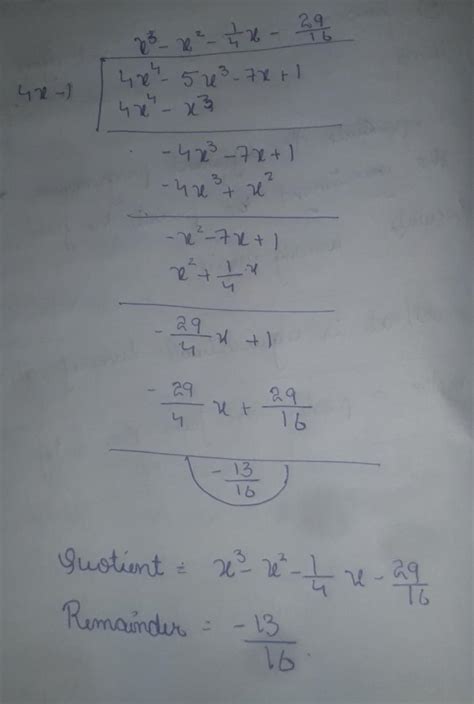 x³ - x² - 1/4 x - 29/16
4x-1 4x⁴ - 5x³ - 7x + 1
4x⁴ - x³
-4x³ - 7x + 1
-4x³ + x²
-x² - 7x + 1
x² + 1/4 x
- 29/4 x + 1
- 29/4 x + 29/16
-13/16
Quotient = x³ - x² - 1/4 x - 29/16
Remainder = -13/16.